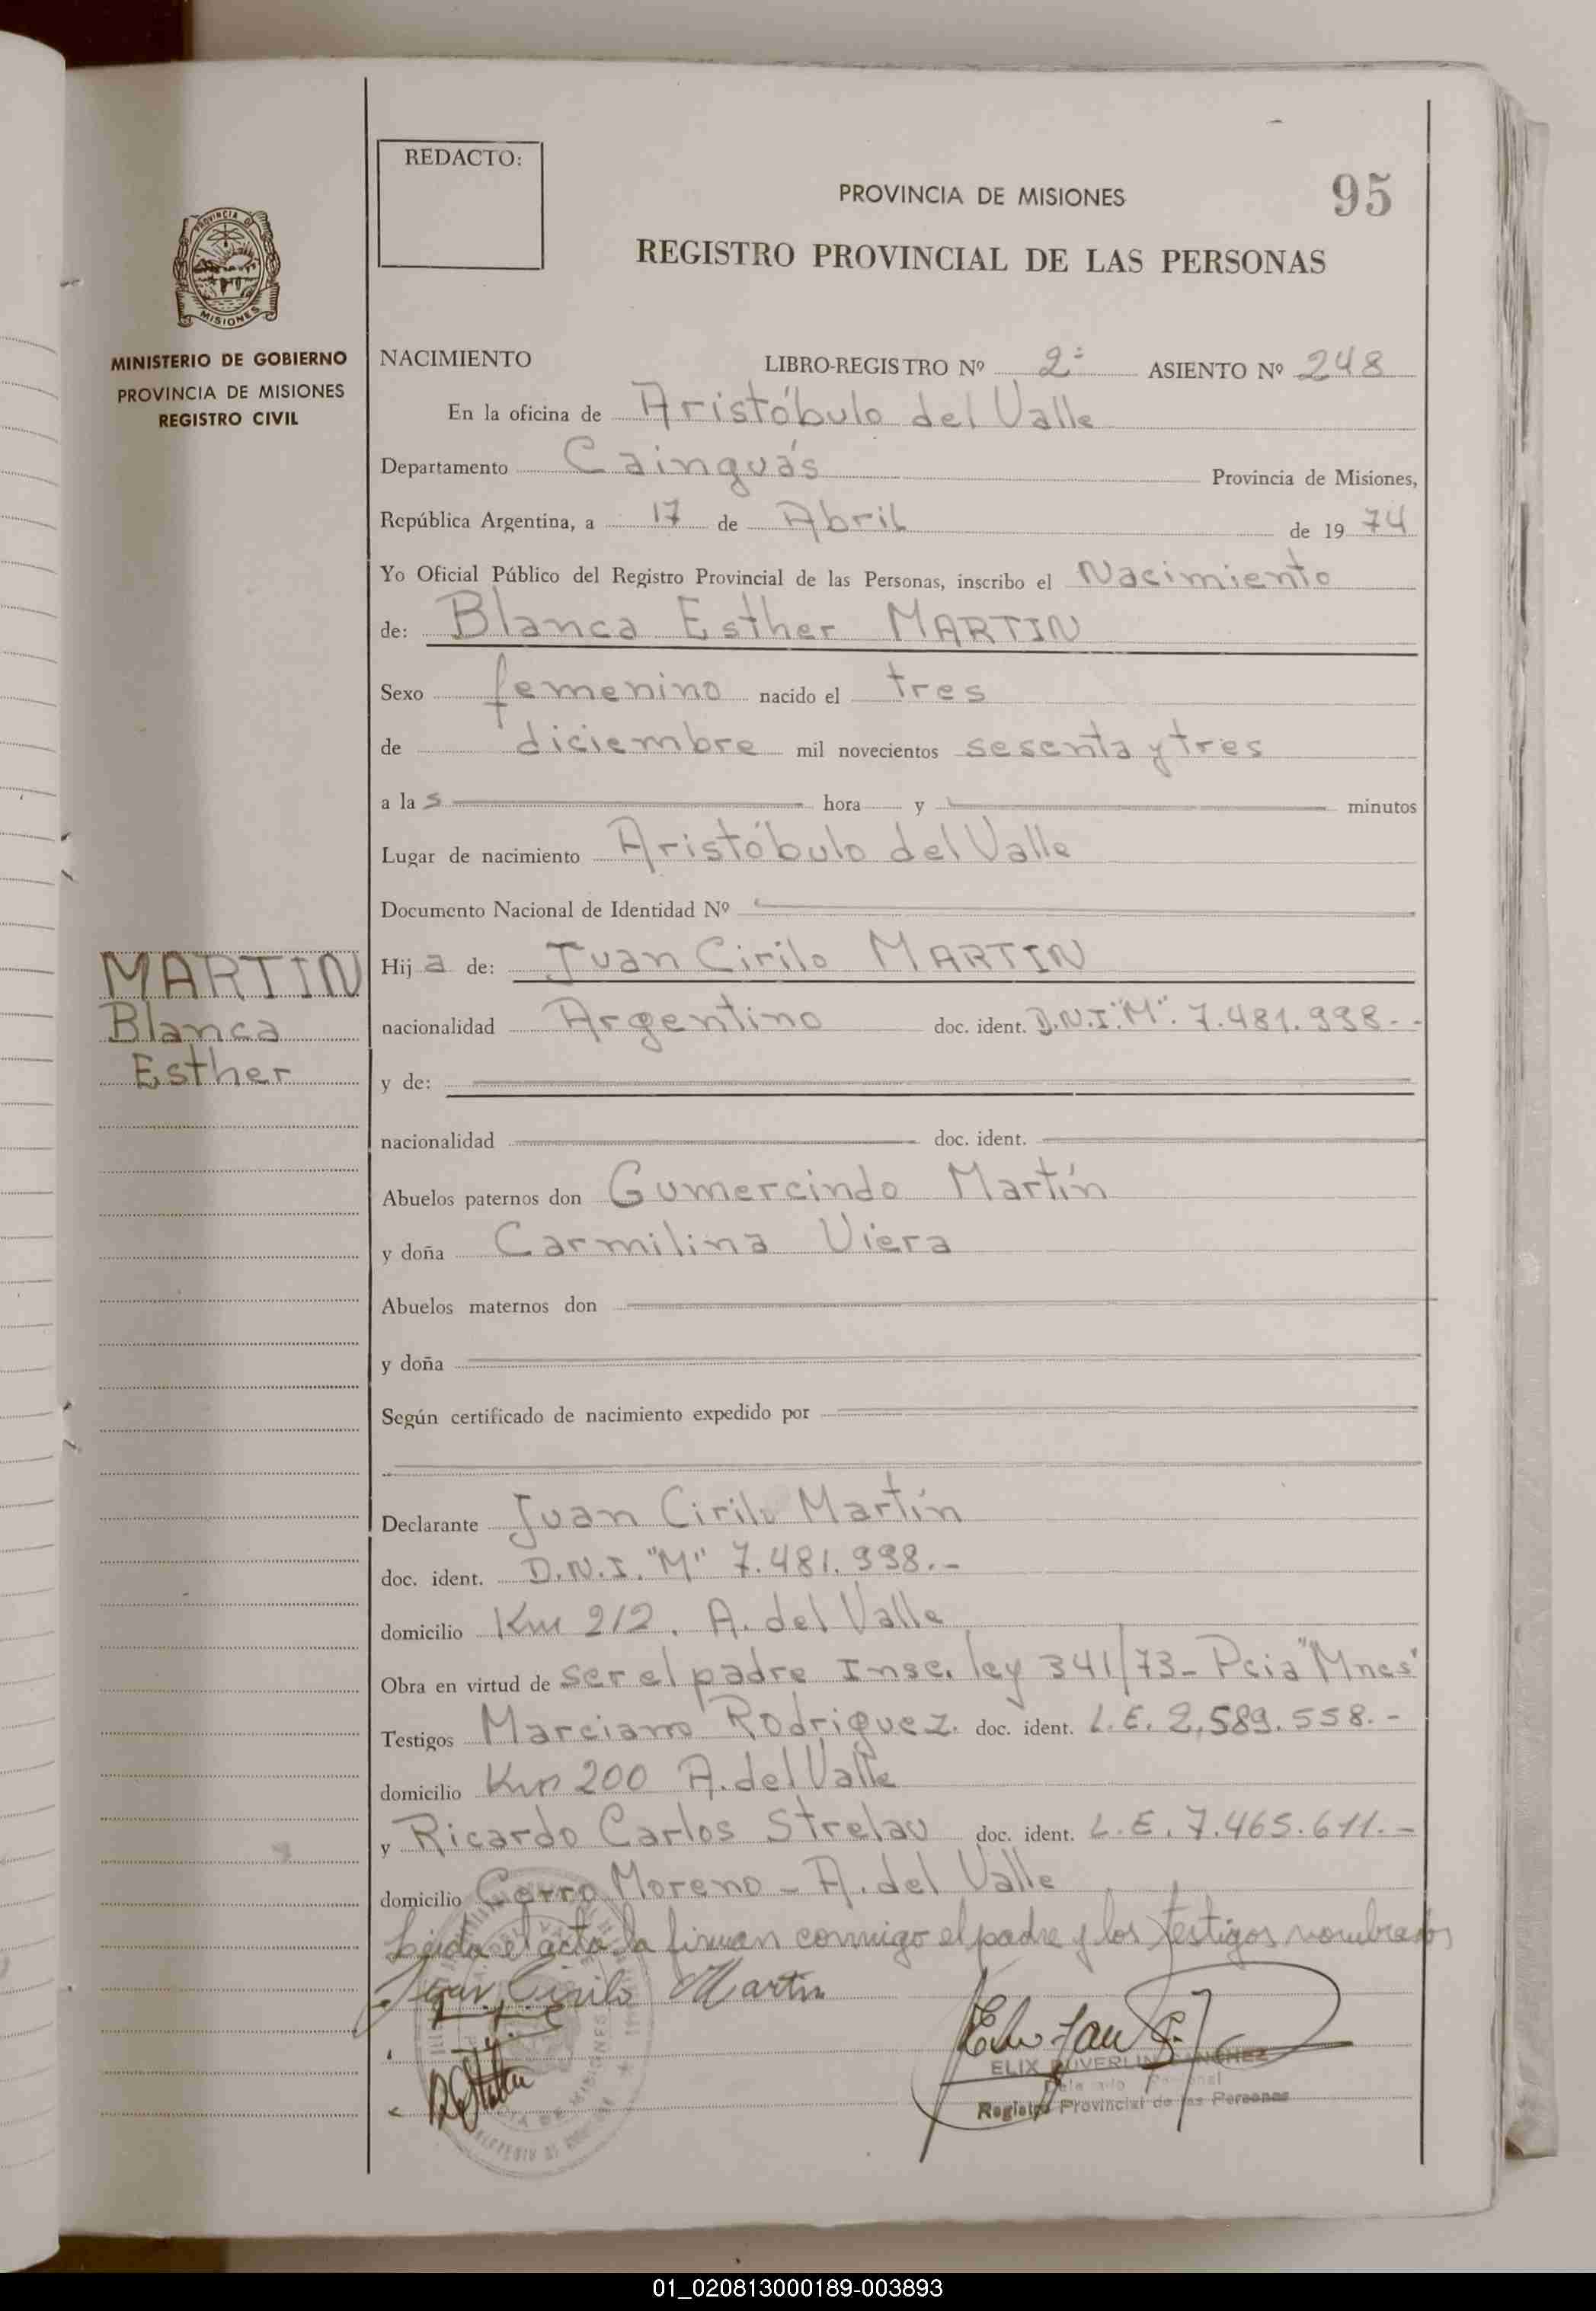 REDACTO:
PROVINCIA DE MISIONES
95
REGISTRO PROVINCIAL DE LAS PERSONAS
PROVINCIA DE
MISIONES
MINISTERIO DE GOBIERNO
PROVINCIA DE MISIONES
REGISTRO CIVIL
NACIMIENTO LIBRO-REGISTRO Nº 2º ASIENTO Nº 248
En la oficina de Aristóbulo del Valle
Departamento Cainguás Provincia de Misiones,
República Argentina, a 17 de Abril de 19 74
Yo Oficial Público del Registro Provincial de las Personas, inscribo el Nacimiento
de: Blanca Esther MARTIN
Sexo femenino nacido el tres
de diciembre mil novecientos sesenta y tres
a la s hora y minutos
Lugar de nacimiento Aristóbulo del Valle
Documento Nacional de Identidad Nº
MARTIN
Blanca
Esther
Hij a de: Juan Cirilo MARTIN
nacionalidad Argentino doc. ident. D.N.I."M". 7.481.998.-
y de:
nacionalidad doc. ident.
Abuelos paternos don Gumercindo Martín
y doña Carmilina Viera
Abuelos maternos don
y doña
Según certificado de nacimiento expedido por
Declarante Juan Cirilo Martín
doc. ident. D.N.I. "M" 7.481.998.-
domicilio Km 212. A. del Valle
Obra en virtud de ser el padre Insc. ley 341/73- Pcia "Mnes"
Testigos Marciano Rodriguez. doc. ident. L.E. 2.589.558.-
domicilio Km 200 A. del Valle
y Ricardo Carlos Strelau doc. ident. L.E. 7.465.611.-
domicilio Cerro Moreno - A. del Valle
Leida el acta la firman conmigo el padre y los testigos nombrados
Juan Cirilo Martin
ELIX DUVERLIN SANCHEZ
Registro Provincial de las Personas
01_020813000189-003893